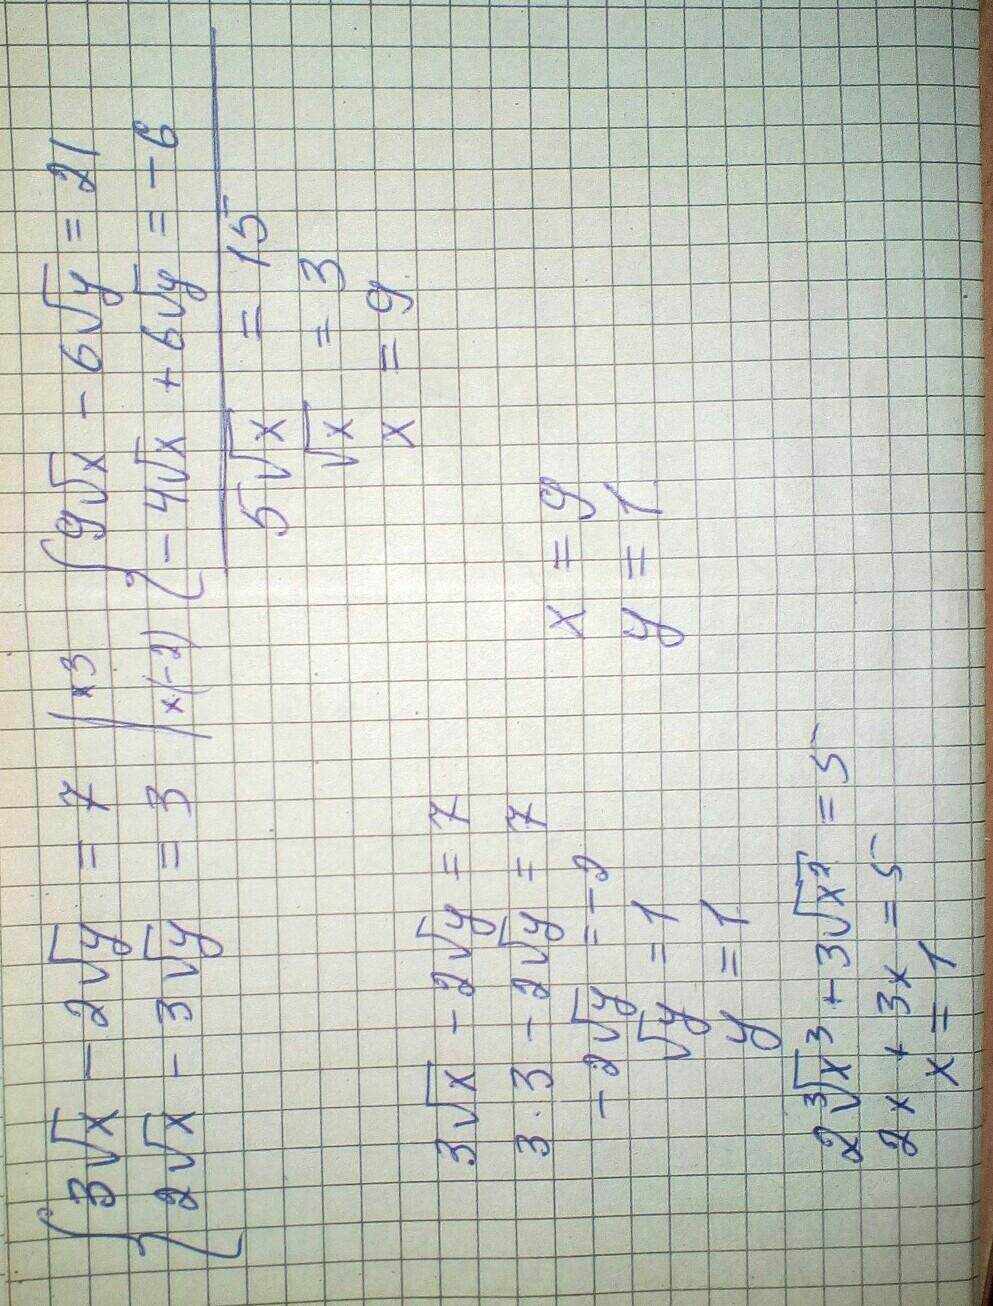 { 3√x − 2√y = 7 | ×3 { 9√x − 6√y = 21
2√x − 3√y = 3 | ×(−2) − 4√x + 6√y = −6
5√x = 15
√x = 3
x = 9
3√x − 2√y = 7
3·3 − 2√y = 7
−2√y = −2
√y = 1
y = 1
x = 9
y = 1
2∛x³ + 3√x² = 5
2x + 3x = 5
x = 1